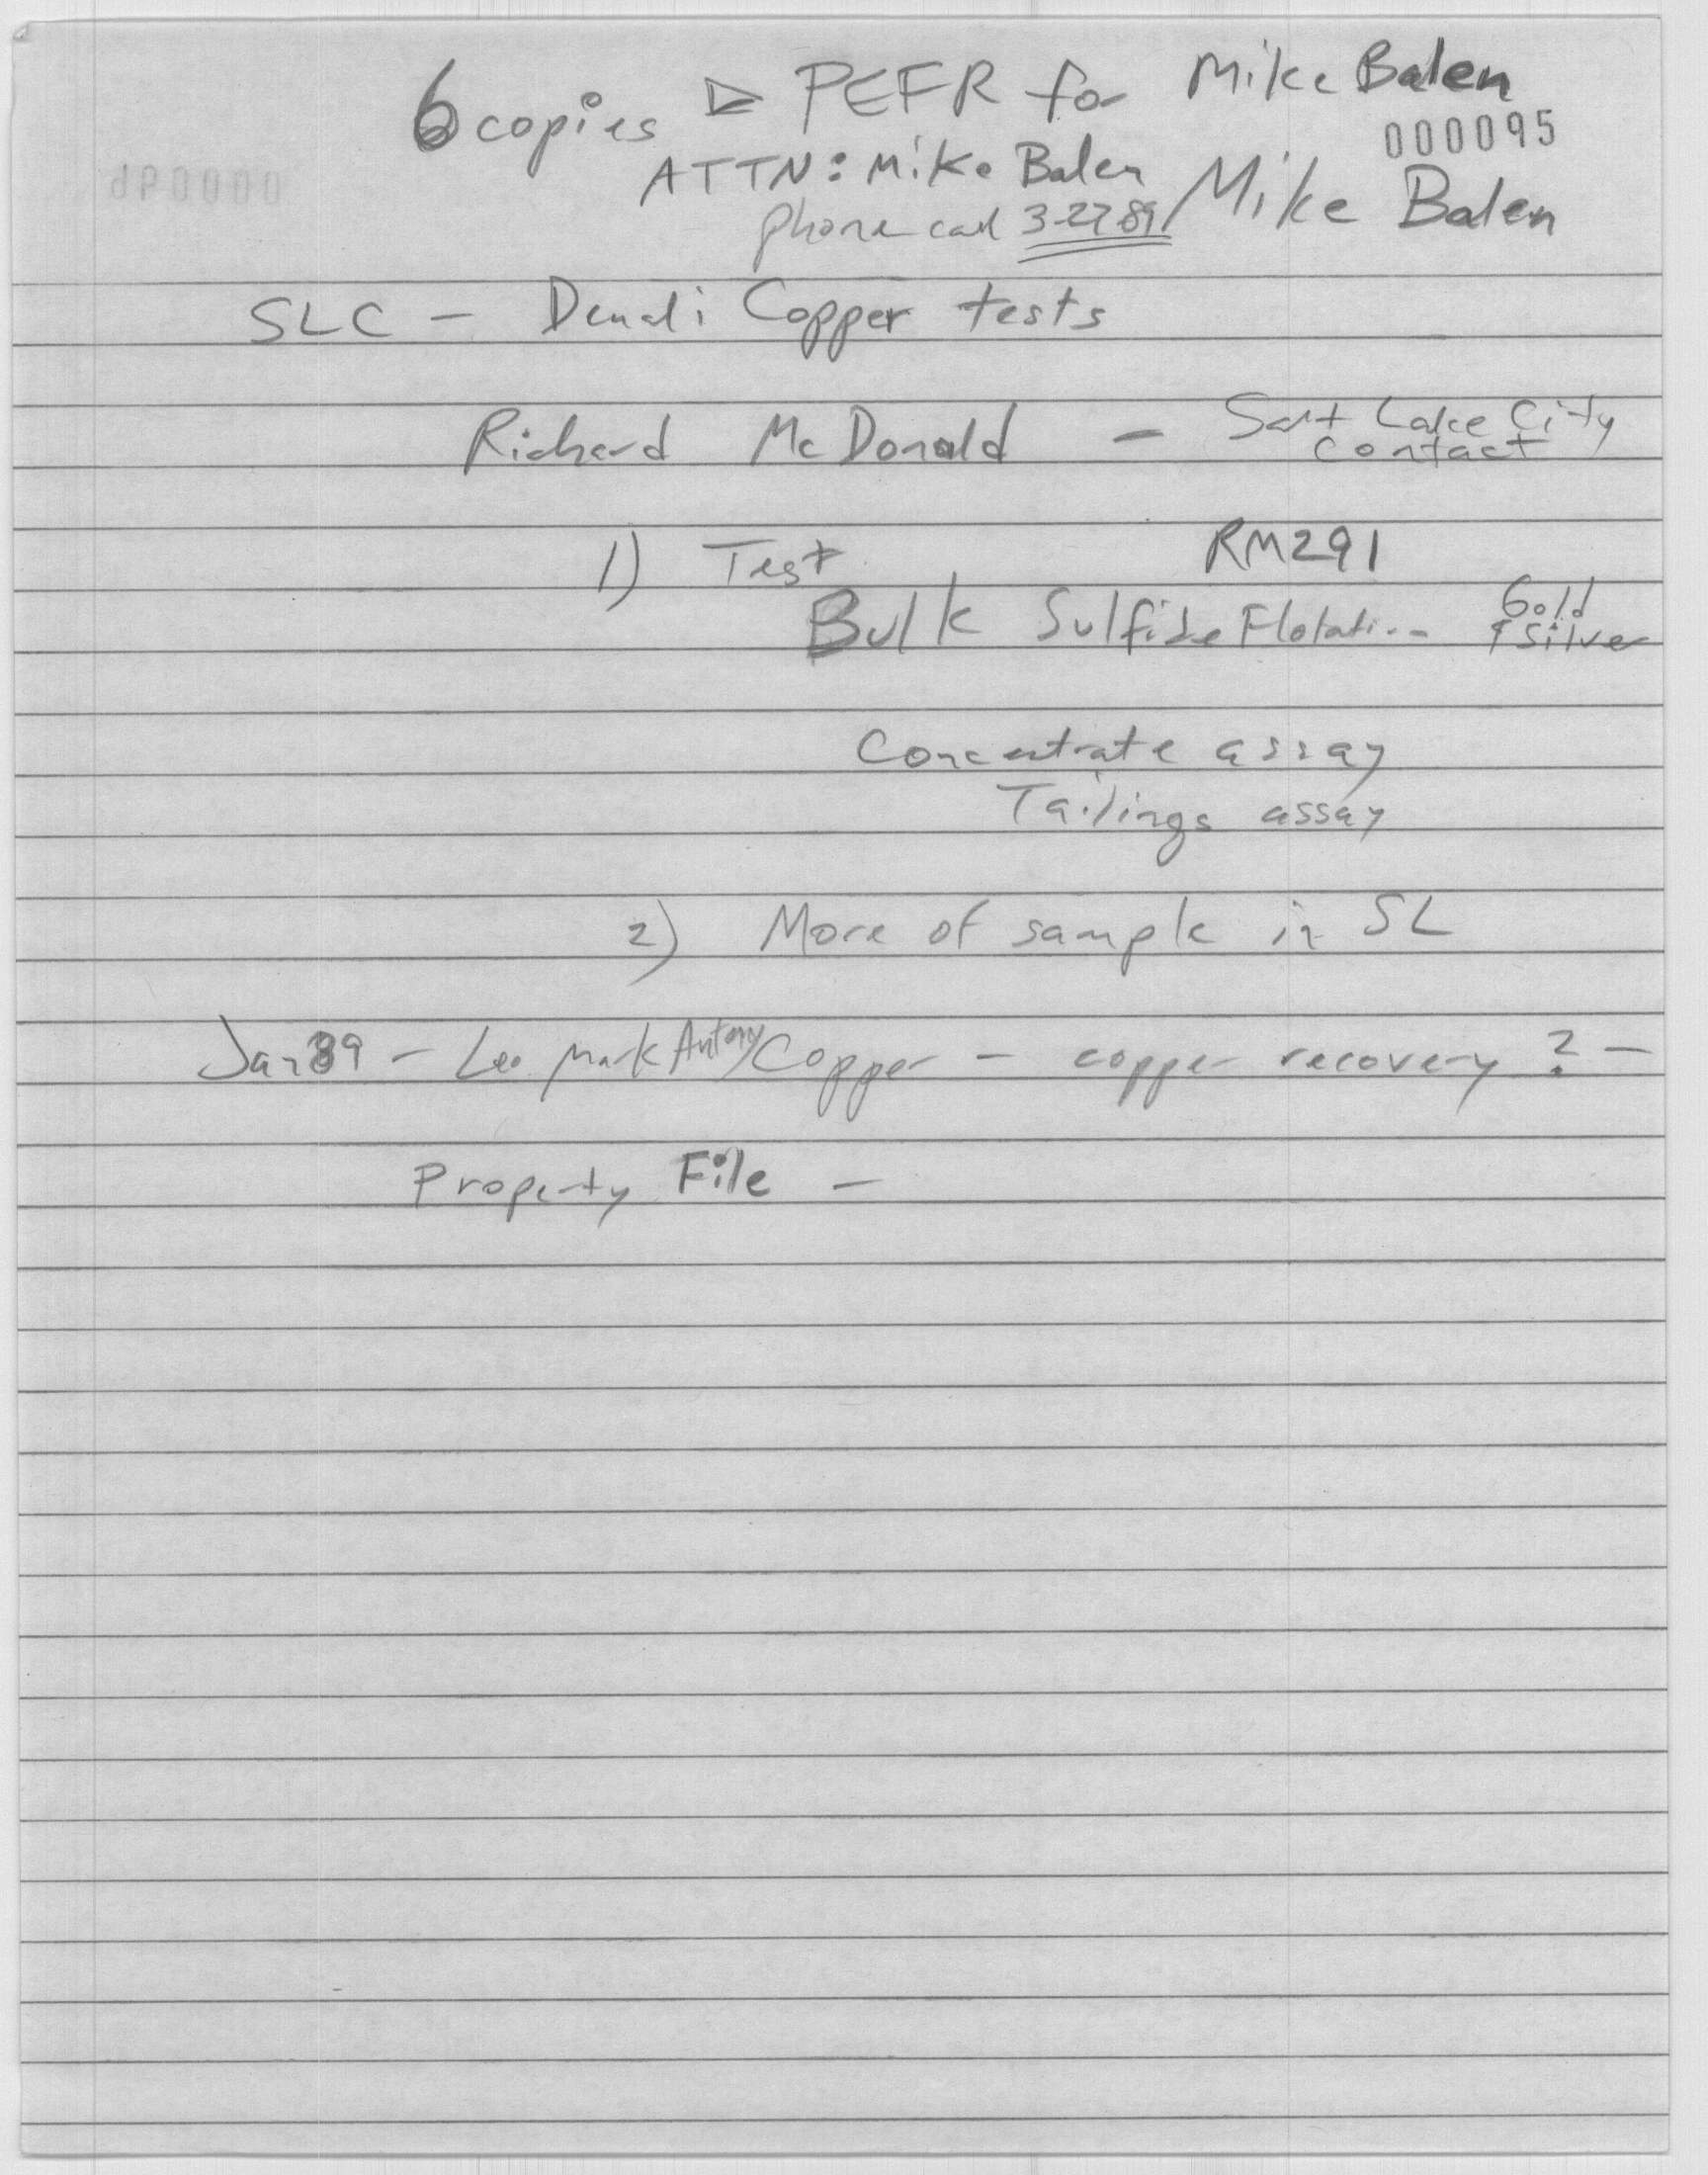 6 copies ▷ PEFR for Mike Balen
000095
ATTN: Mike Balen
phone call 3-27-89 / Mike Balen
SLC - Denali Copper tests
Richard McDonald - Salt Lake City
contact
1) Test RM291
Bulk Sulfide Flotation Gold
& Silver
Concentrate assay
Tailings assay
2) More of sample in SL
Jan 89 - Leo Mark Antony / Copper - copper recovery ? -
Property File -